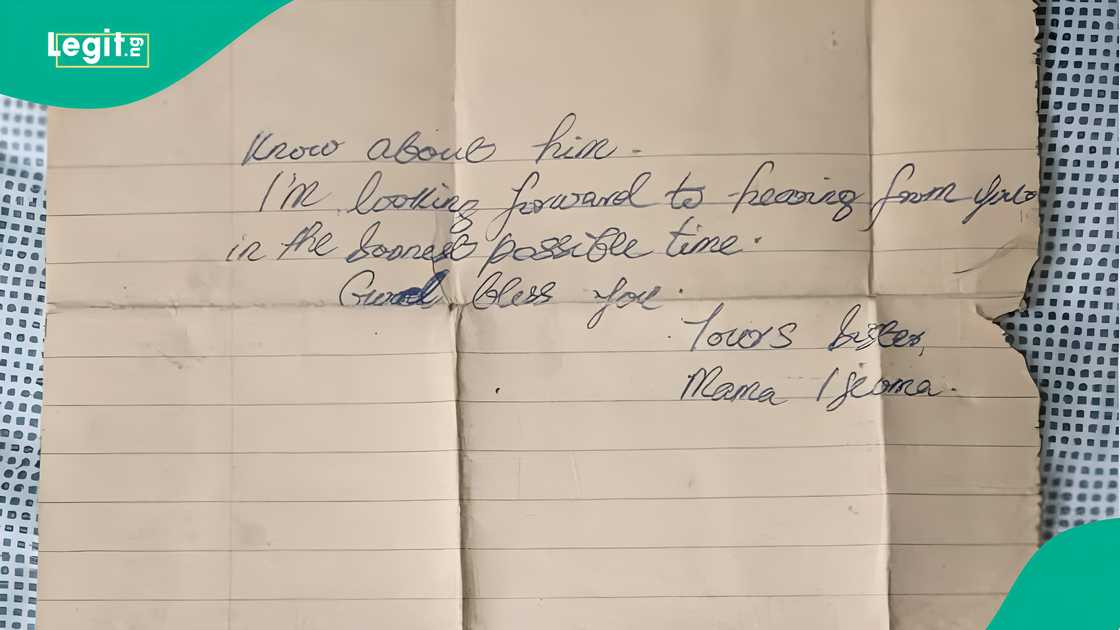 Legit.ng
Know about him.
I'm looking forward to hearing from you
in the soonest possible time.
God bless you.
Yours Sister,
Mama Ijeoma.